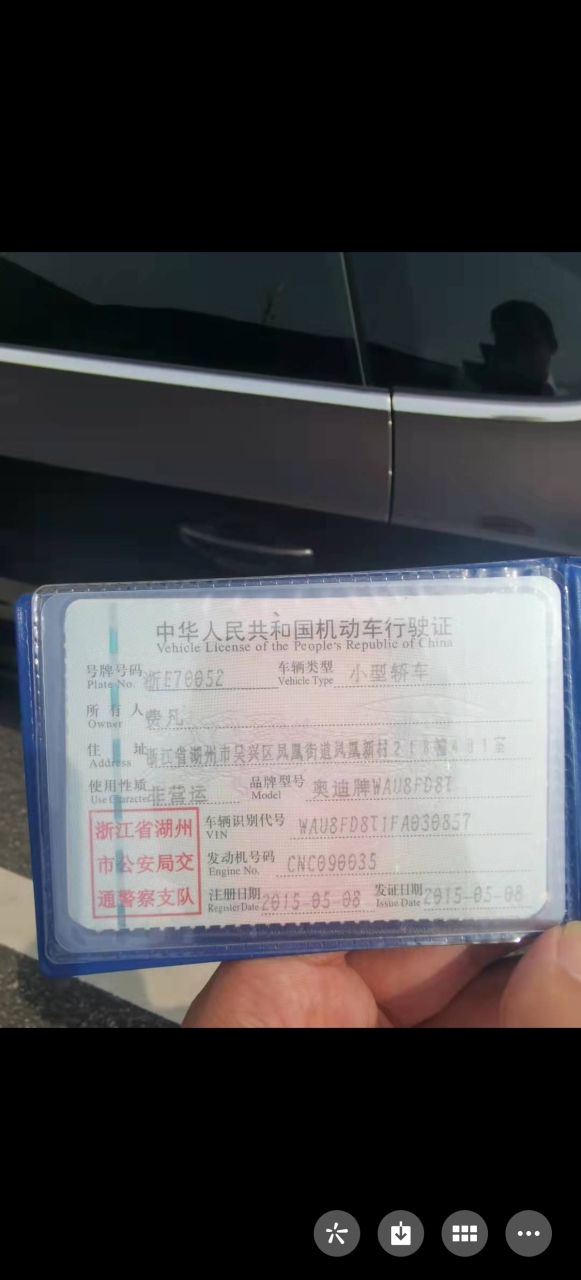 中华人民共和国机动车行驶证
Vehicle License of the People's Republic of China
号牌号码 Plate No. 浙E70052 车辆类型 Vehicle Type 小型轿车
所有人 Owner 费凡
住址 Address 浙江省湖州市吴兴区凤凰街道凤凰新村
使用性质 Use Character 非营运 品牌型号 Model 奥迪牌WAU8FD8T
浙江省湖州市公安局交通警察支队
车辆识别代号 VIN WAU8FD8T1FA030857
发动机号码 Engine No. CNC090035
注册日期 Register Date 2015-05-08 发证日期 Issue Date 2015-05-08